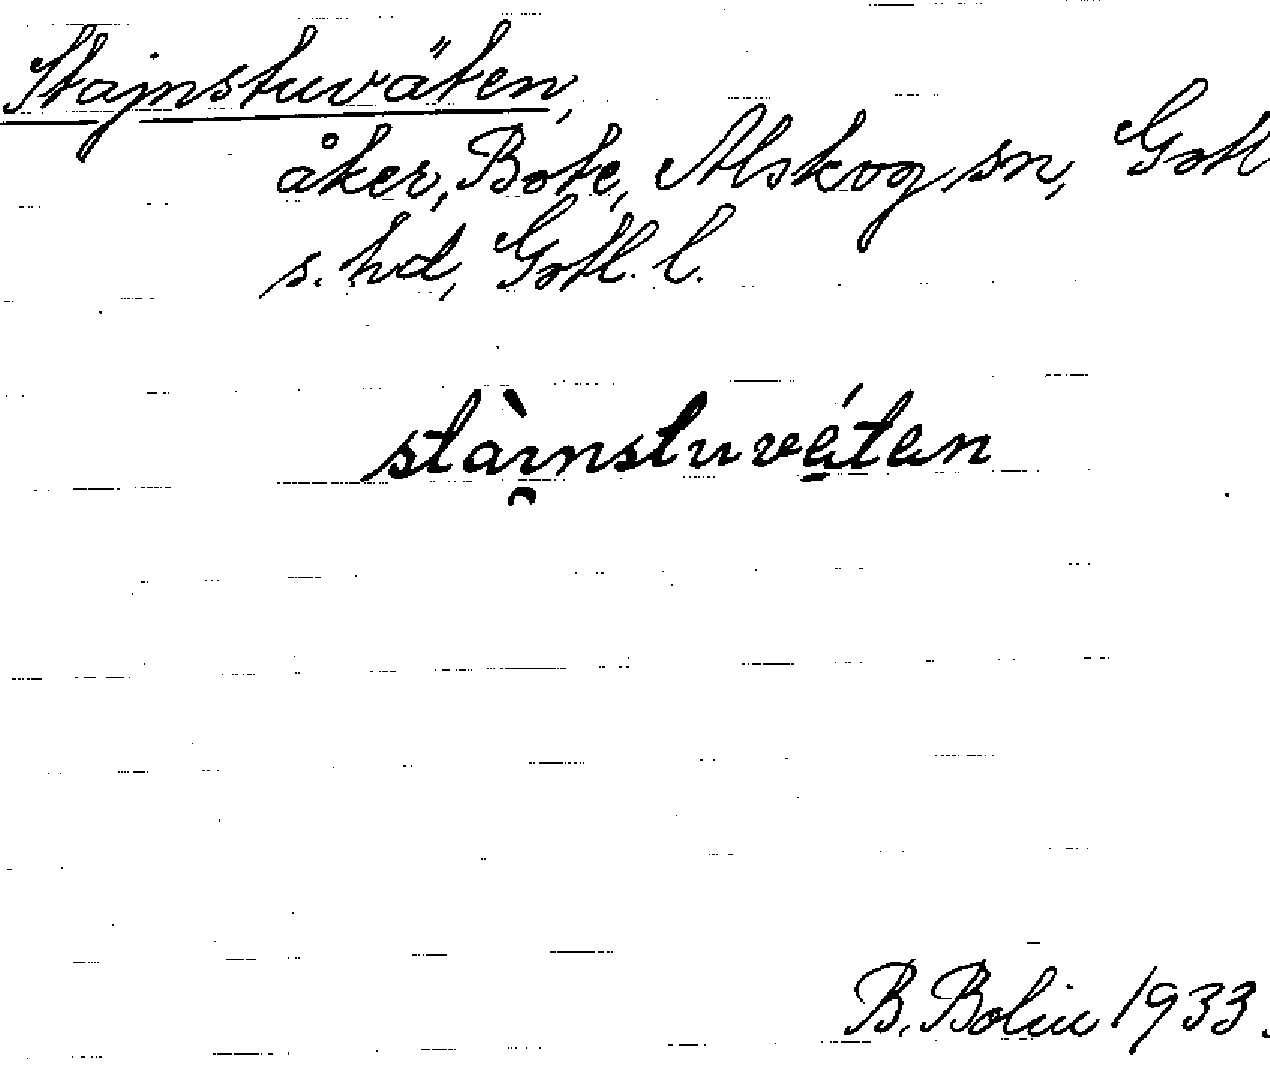 Stajnstuväten,
åker, Bote, Alskog sn, Gotl
s. hd, Gotl. l.
stàɪ̯nstuvé̱tən
B. Bolin 1933.